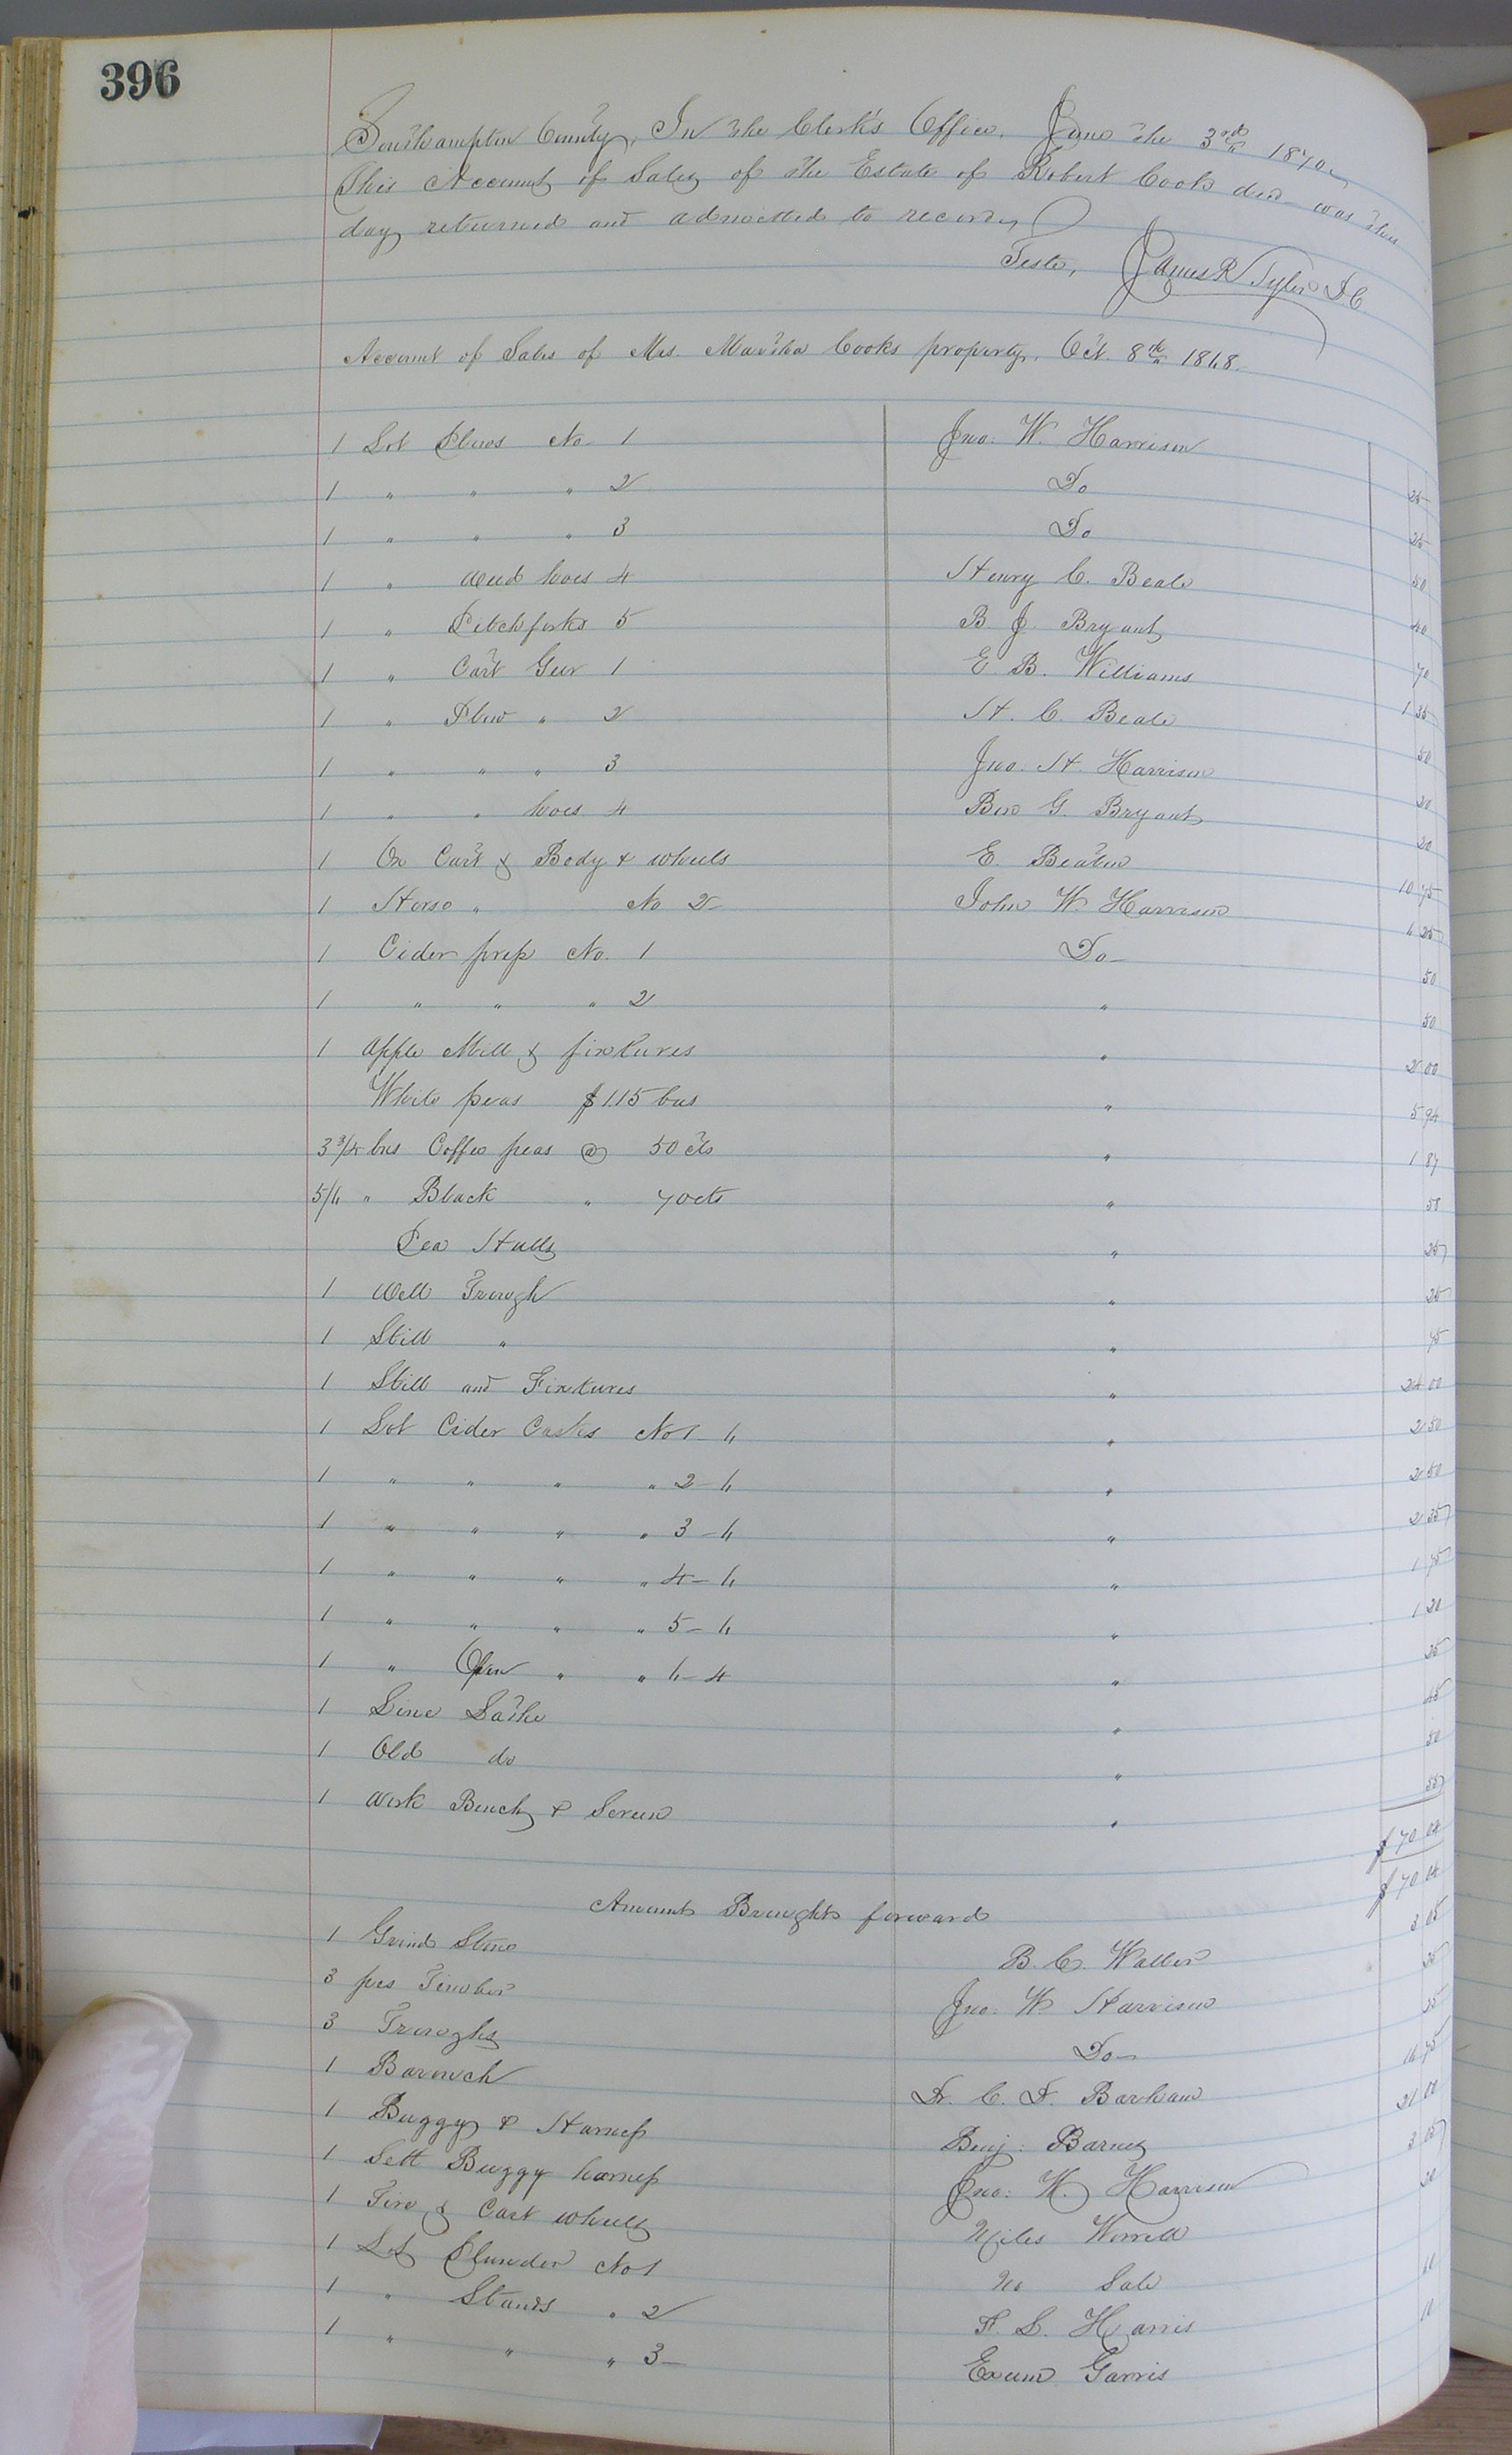 396
Southampton County, In the Clerk's Office. June the 3rd 1870
This Account of Sales of the Estate of Robert Cook decd was this
day returned and admitted to record,
Teste, James R Tyler D.C.
Account of Sales of Mrs. Martha Cooks property, Oct. 8th 1868.
1 Lot Plows No 1 Jno: W. Harrison 25
1 " " " 2 Do 25
1 " " " 3 Do 50
1 " Weed hoes 4 Henry C. Beale 40
1 " Pitchforks 5 B J. Bryant 70
1 " Cart Geer 1 E. B. Williams 1 35
1 " Plow " 2 H. C Beale 50
1 " " " 3 Jno. H. Harrison 20
1 " " hoes 4 Ben G. Bryant 20
1 Ox Cart & Body & wheels E. Beaton 10 75
1 Horse " No 2 John W. Harrison 6 25
1 Cider press No. 1 Do 50
1 " " " 2 " 50
1 Apple Mill & fixtures " 2 00
White peas $1.15 bus " 5 94
3 3/4 bus Coffee peas @ 50 cts " 1 87
5/6 " Black " 70cts " 58
Pea Hulls " 25
1 Well Trough " 25
1 Still " " 75
1 Still and Fixtures " 24 00
1 Lot Cider Casks No 1 - 6 " 2 50
1 " " " " 2 - 6 " 2 50
1 " " " " 3 - 6 " 2 35
1 " " " " 4 - 6 " 1 75
1 " " " " 5 - 6 " 1 20
1 " Open " " 6 - 4 " 25
1 Lathe " 45
1 Old do " 50
1 Work Bench & Screw " 55
$70 04
$70 04
Amount Brought forward
1 Grind Stone B. C. Waller 3 05
3 pcs Timber Jno: W. Harrison 25
3 Troughs Do 25
1 Barouch Dr. C. F. Barham 16 75
1 Buggy & Harness Benj: Barnes 21 00
1 Sett Buggy harness Jno: W. Harrison 3 05
1 Tire & Cart wheels Miles Worrell 20
1 Lot Plunder No 1 No Sale
1 " Stands " 2 F. S. Harris 10
1 " " " 3 Exum Garris 10